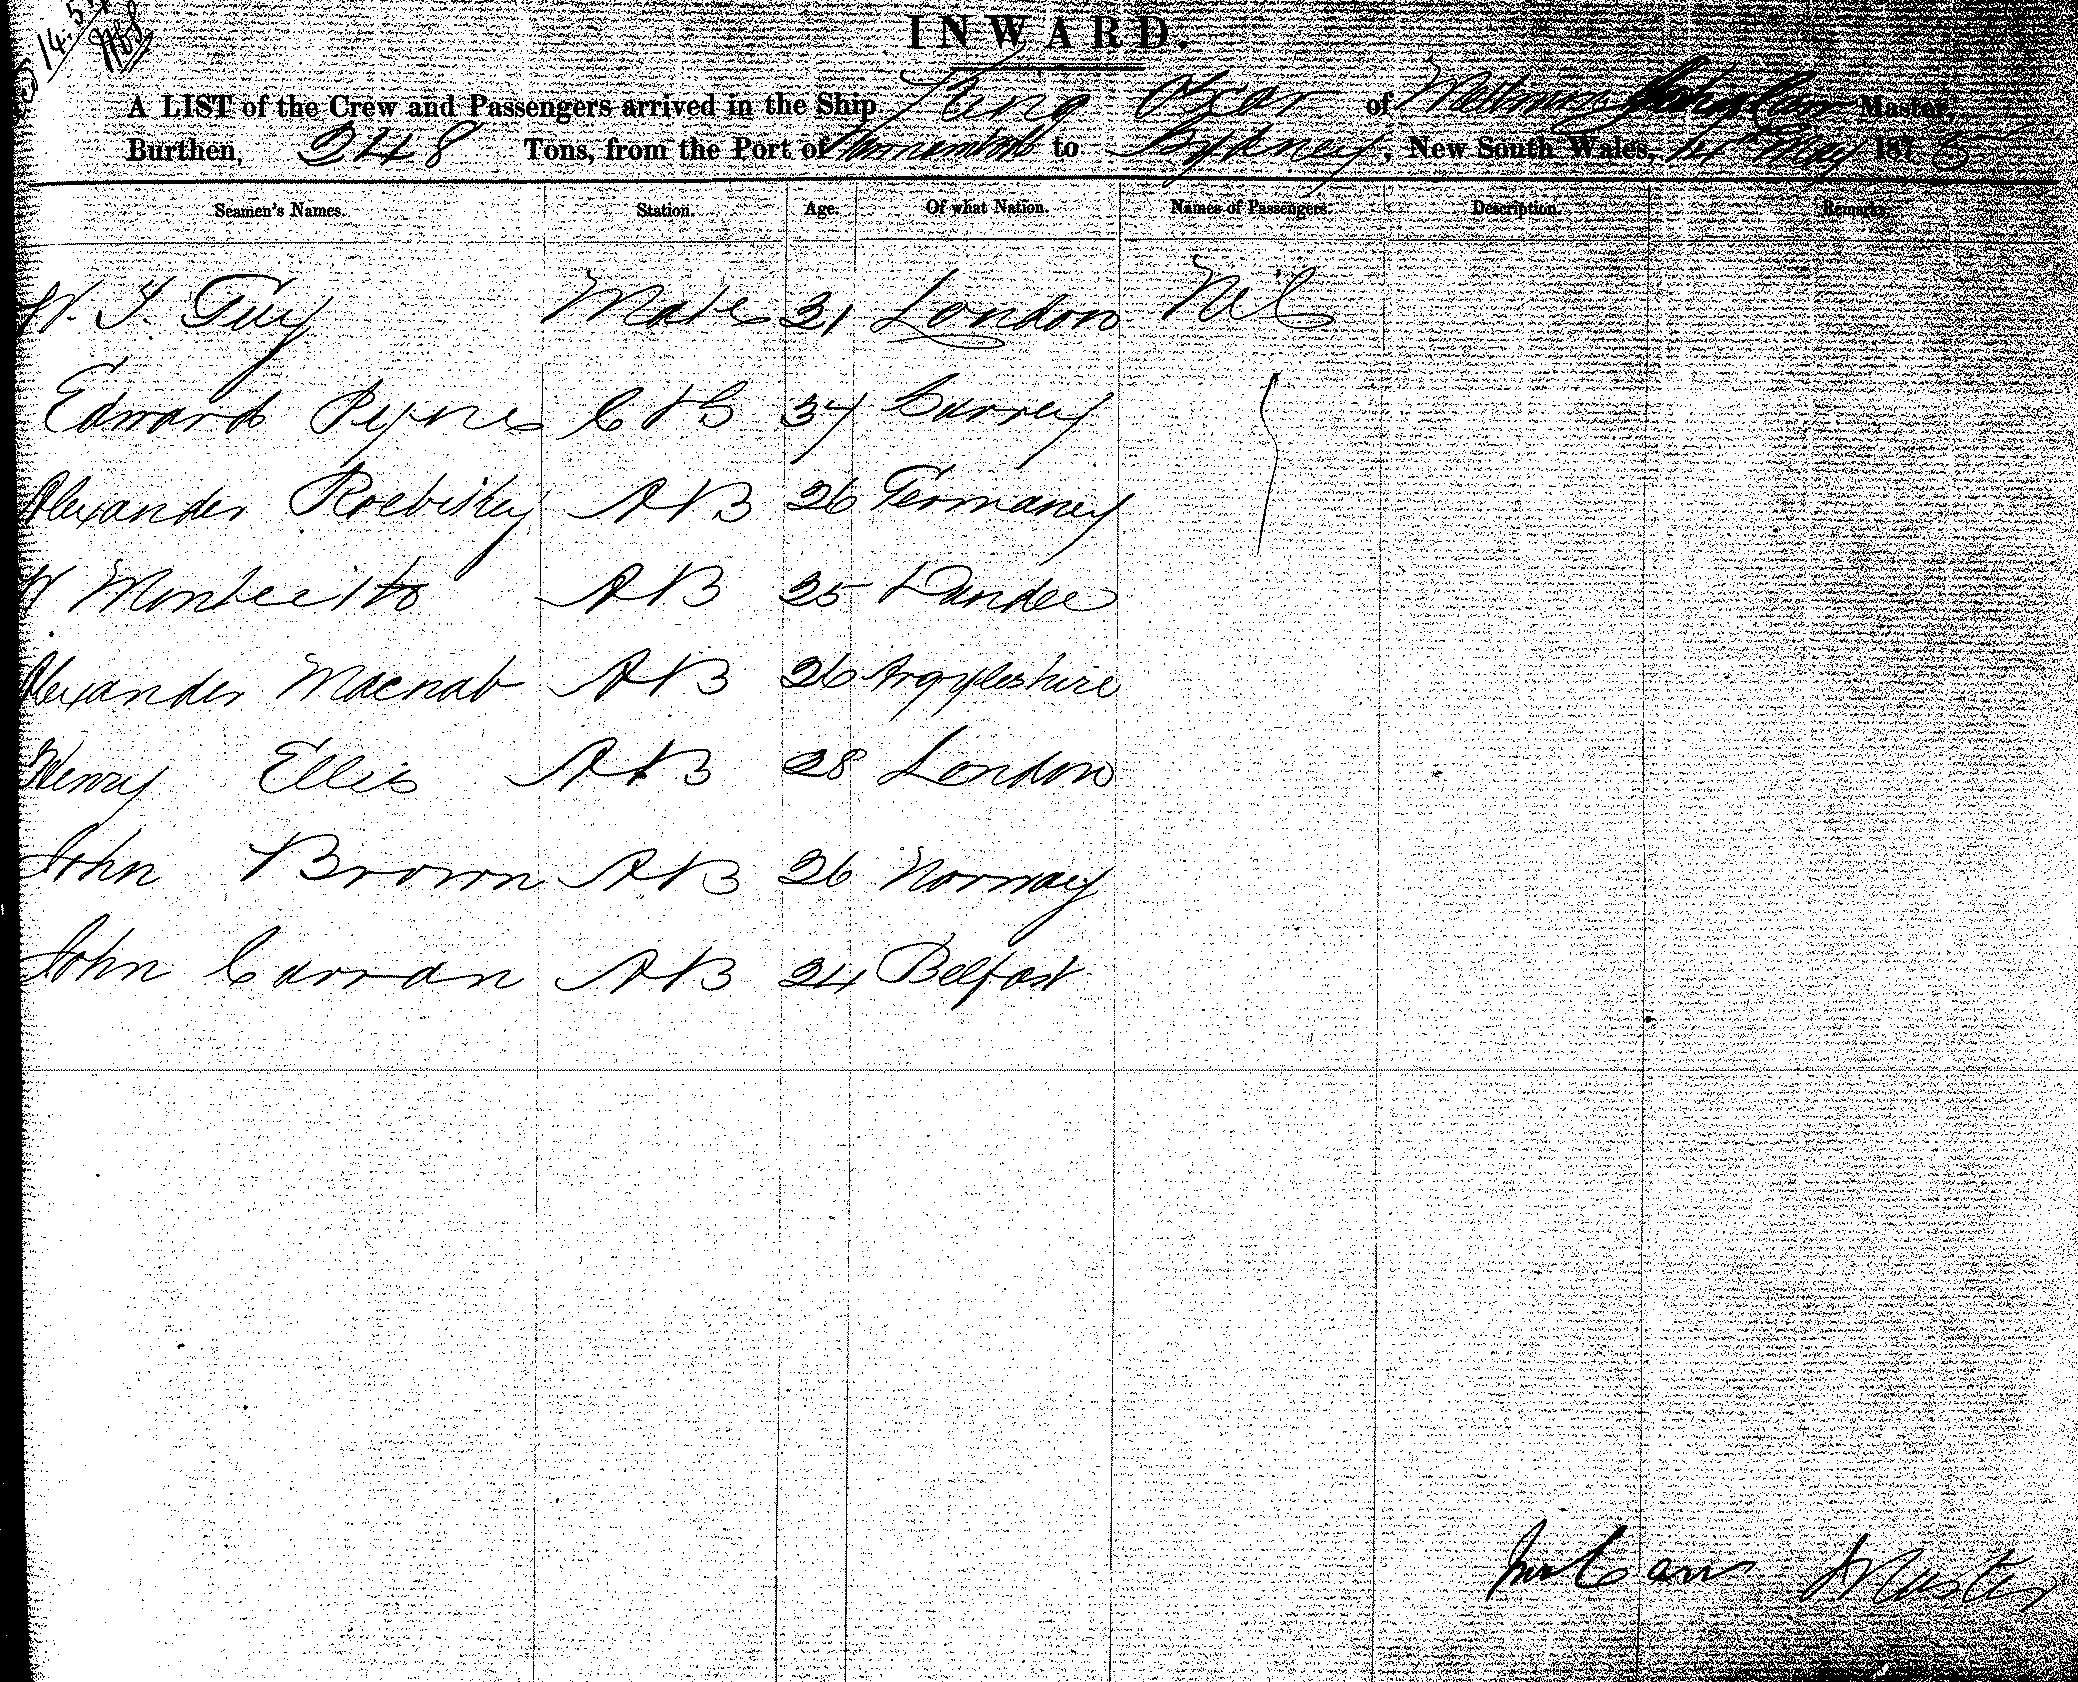 14.5.
INWARD.
A LIST of the Crew and Passengers arrived in the Ship King Oscar of Melbourne Master,
Burthen, 248 Tons, from the Port of to Sydney, New South Wales, 14th May 187
Seamen's Names. Station. Age. Of what Nation. Names of Passengers. Description. Remarks.
W. J. Guy Mate 31 London Nil
Edward C & S 34 Surrey
Alexander AB 26 Germaney
W Monteith AB 25 Dundee
Alexander Macnab AB 26 Argyleshire
Henry Ellis AB 28 London
John Brown AB 26 Norway
John Curran AB 24 Belfast
Jno Carr Master